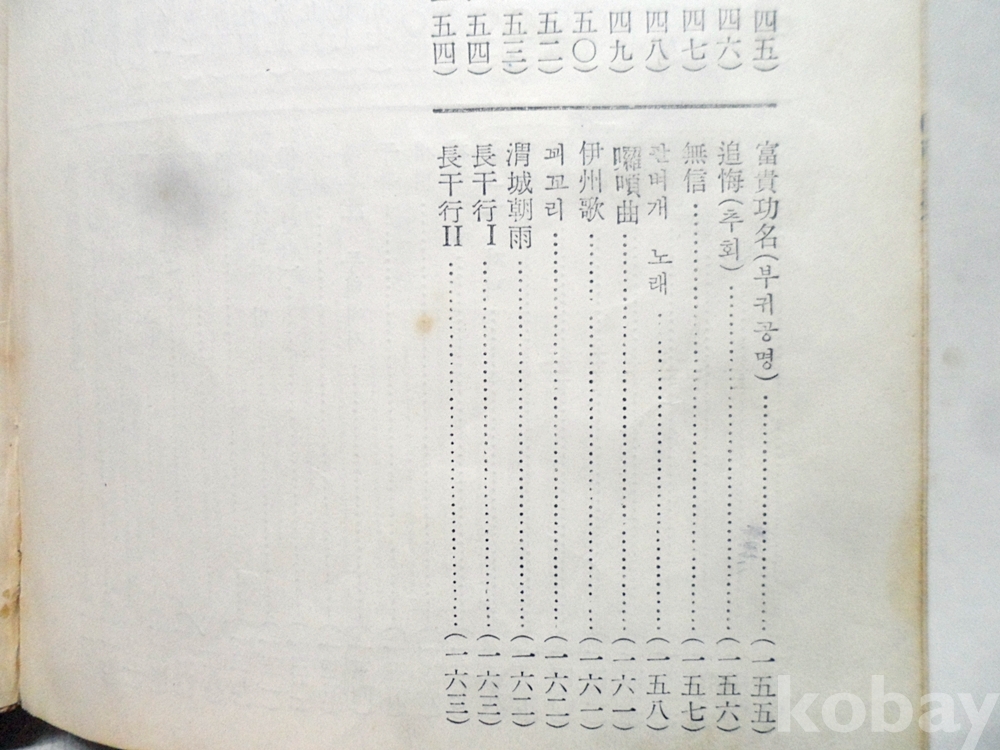 四五)
四六)
四七)
四八)
四九)
五〇)
五二)
五三)
五四)
五四)
富貴功名(부귀공명)……(一五五)
追悔(추회)……(一五六)
無信……(一五七)
노래……(一五八)
囉嗊曲……(一六一)
伊州歌……(一六一)
꾀꼬리……(一六二)
渭城朝雨……(一六二)
長干行I……(一六三)
長干行II……(一六三)
kobay